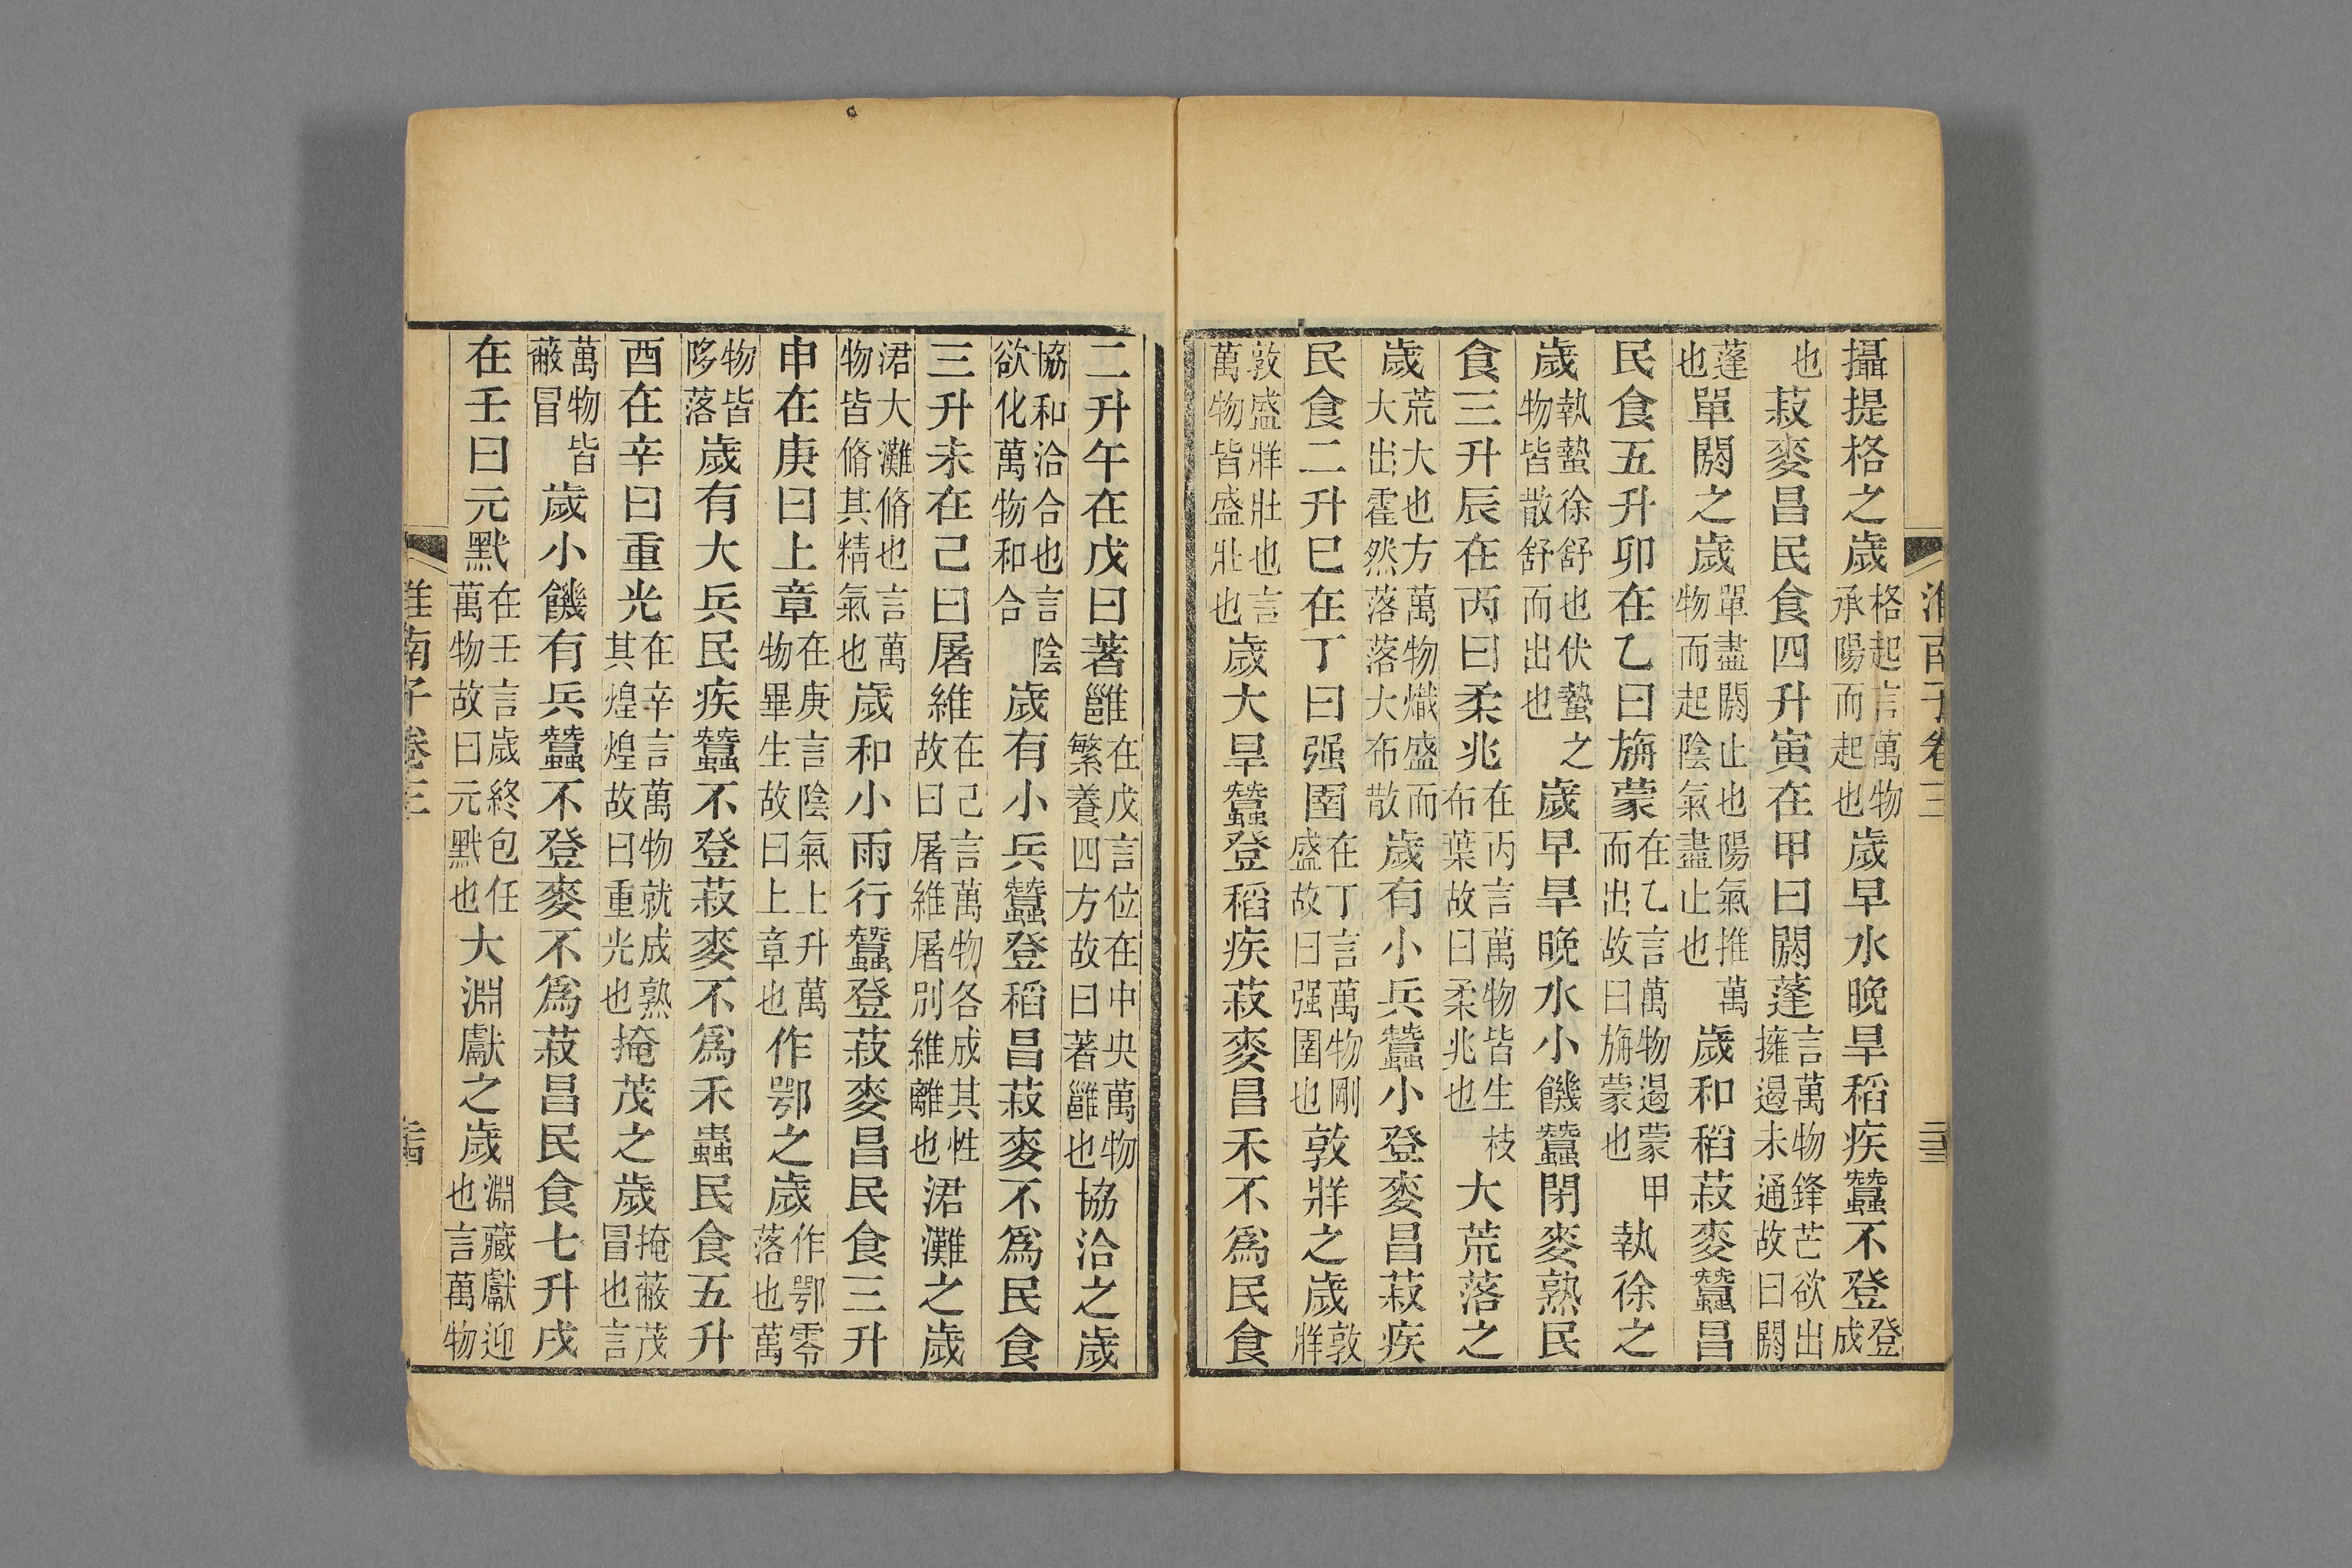 淮南子卷三
二十三
攝提格之歲格起言萬物承陽而起也歲早水晚旱稻疾蠶不登登成
也菽麥昌民食四升寅在甲曰閼蓬言萬物鋒芒欲出擁遏未通故曰閼
蓬也單閼之歲單盡閼止也陽氣推萬物而起陰氣盡止也歲和稻菽麥蠶昌
民食五升卯在乙曰旃蒙在乙言萬物遏蒙甲而出故曰旃蒙也執徐之
歲執蟄徐舒也伏蟄之物皆散舒而出也歲早旱晚水小饑蠶閉麥熟民
食三升辰在丙曰柔兆在丙言萬物皆生枝布葉故曰柔兆也大荒落之
歲荒大也方萬物熾盛而大出霍然落落大布散歲有小兵蠶小登麥昌菽疾
民食二升巳在丁曰强圉在丁言萬物剛盛故曰强圉也敦牂之歲敦牂
敦盛牂壯也言萬物皆盛壯也歲大旱蠶登稻疾菽麥昌禾不爲民食
二升午在戊曰著雝在戊言位在中央萬物繁養四方故曰著雝也協洽之歲
協和洽合也言陰欲化萬物和合歲有小兵蠶登稻昌菽麥不爲民食
三升未在己曰屠維在己言萬物各成其性故曰屠維屠別維離也涒灘之歲
涒大灘脩也言萬物皆脩其精氣也歲和小雨行蠶登菽麥昌民食三升
申在庚曰上章在庚言陰氣上升萬物畢生故曰上章也作鄂之歲作鄂零落也萬
物皆陊落歲有大兵民疾蠶不登菽麥不爲禾蟲民食五升
酉在辛曰重光在辛言萬物就成熟其煌煌故曰重光也掩茂之歲掩蔽茂冒也言
萬物皆蔽冒歲小饑有兵蠶不登麥不爲菽昌民食七升戌
在壬曰元默在壬言歲終包任萬物故曰元默也大淵獻之歲淵藏獻迎也言萬物
淮南子卷三
二十四